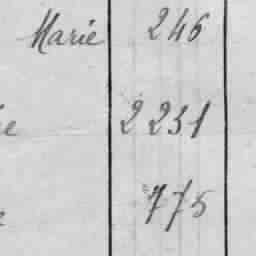 Marie 246
e 2231
775